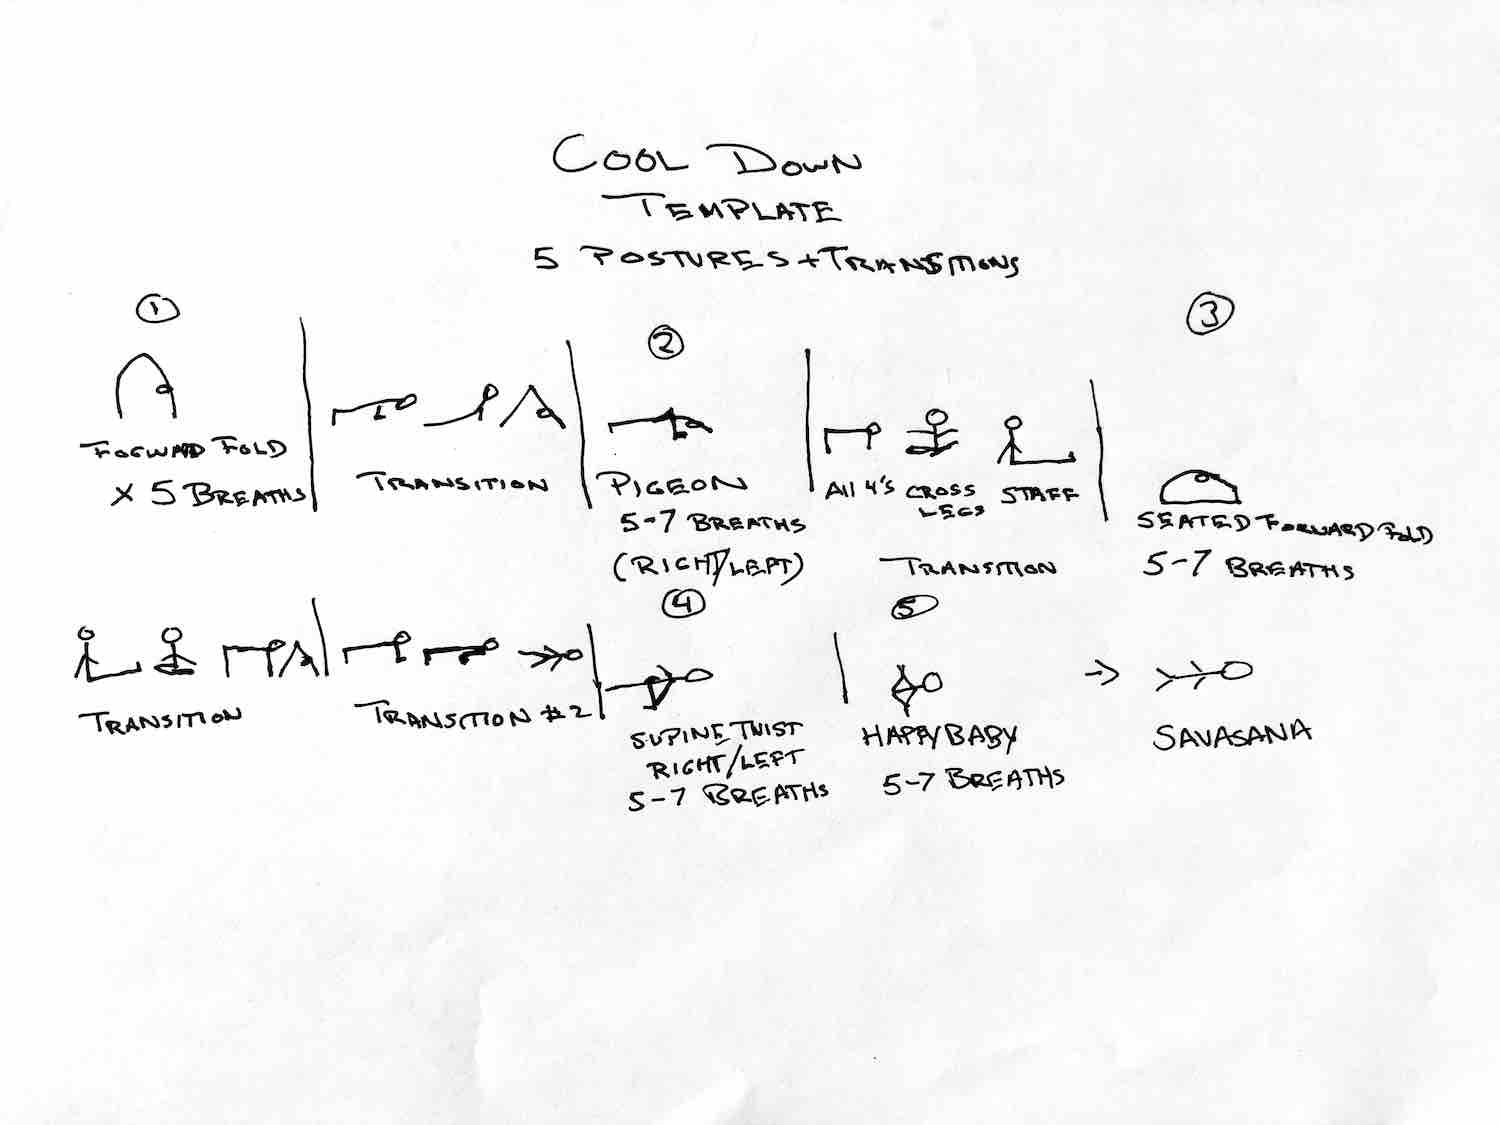 COOL DOWN
TEMPLATE
5 POSTURES + TRANSITIONS
1
FORWARD FOLD
X 5 BREATHS
TRANSITION
2
PIGEON
5-7 BREATHS
(RIGHT/LEFT)
All 4's CROSS LEGS STAFF
TRANSITION
3
SEATED FORWARD FOLD
5-7 BREATHS
TRANSITION
TRANSITION #2
4
SUPINE TWIST
RIGHT/LEFT
5-7 BREATHS
5
HAPPY BABY
5-7 BREATHS
→ SAVASANA